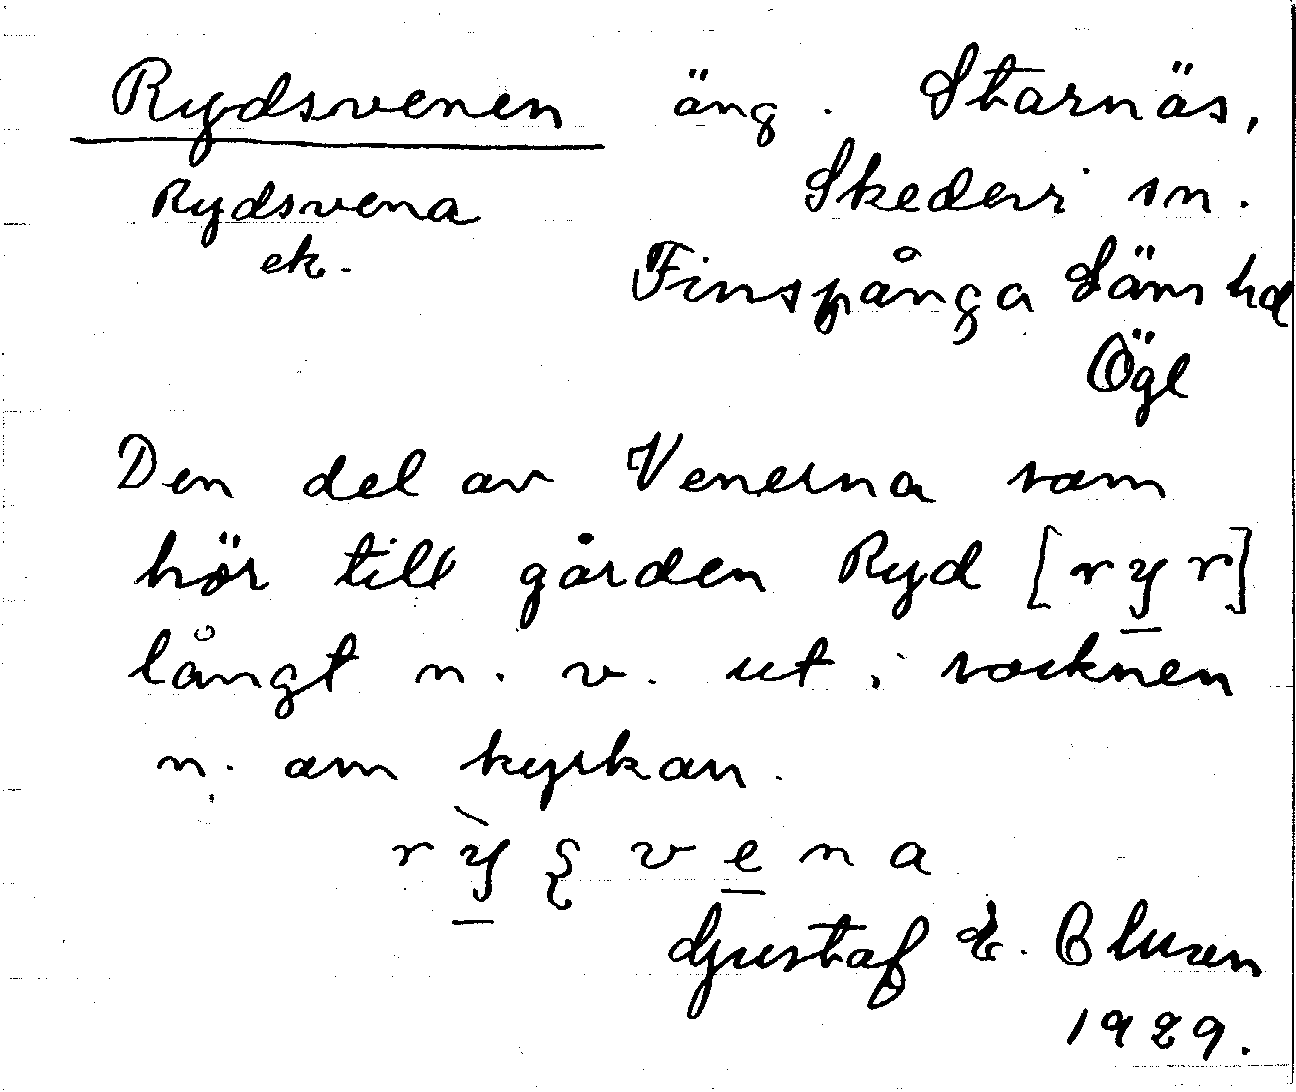 Rydsvenen äng. Starnäs,
Rydsvena Skedevi sn.
ek. Finspånga läns hd
Ögl
Den del av Venerna som
hör till gården Ryd [ryr]
långt n. v. ut i socknen
n. om kyrkan.
rỳʂvena
Gustaf E. Oluxen
1929.